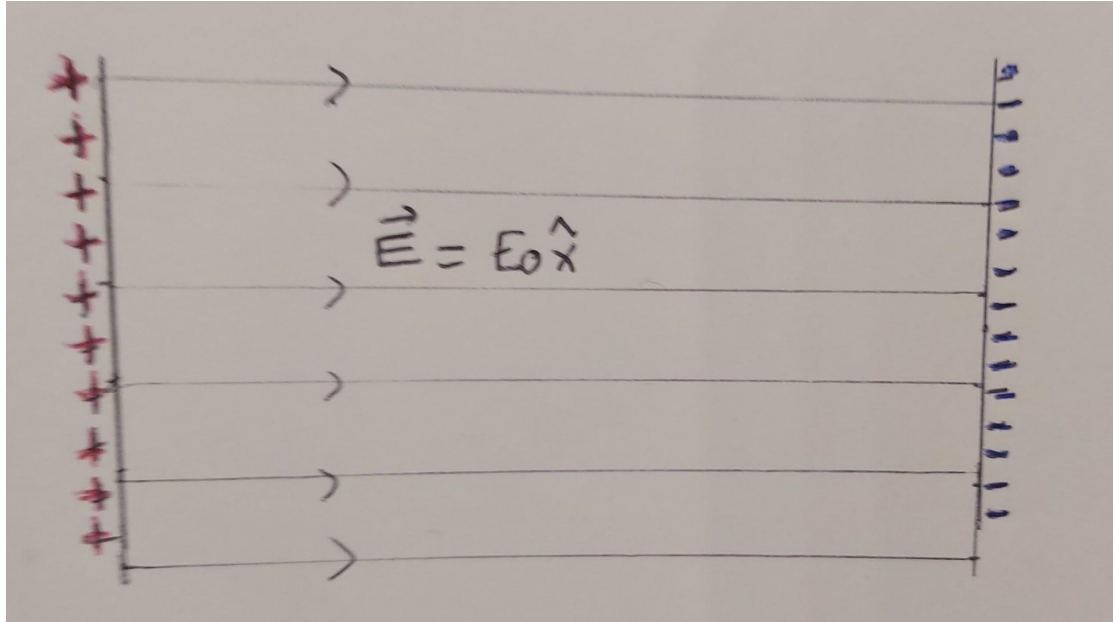 +
+
+
+
+
+
+
+
+
+
E⃗ = E₀ x̂